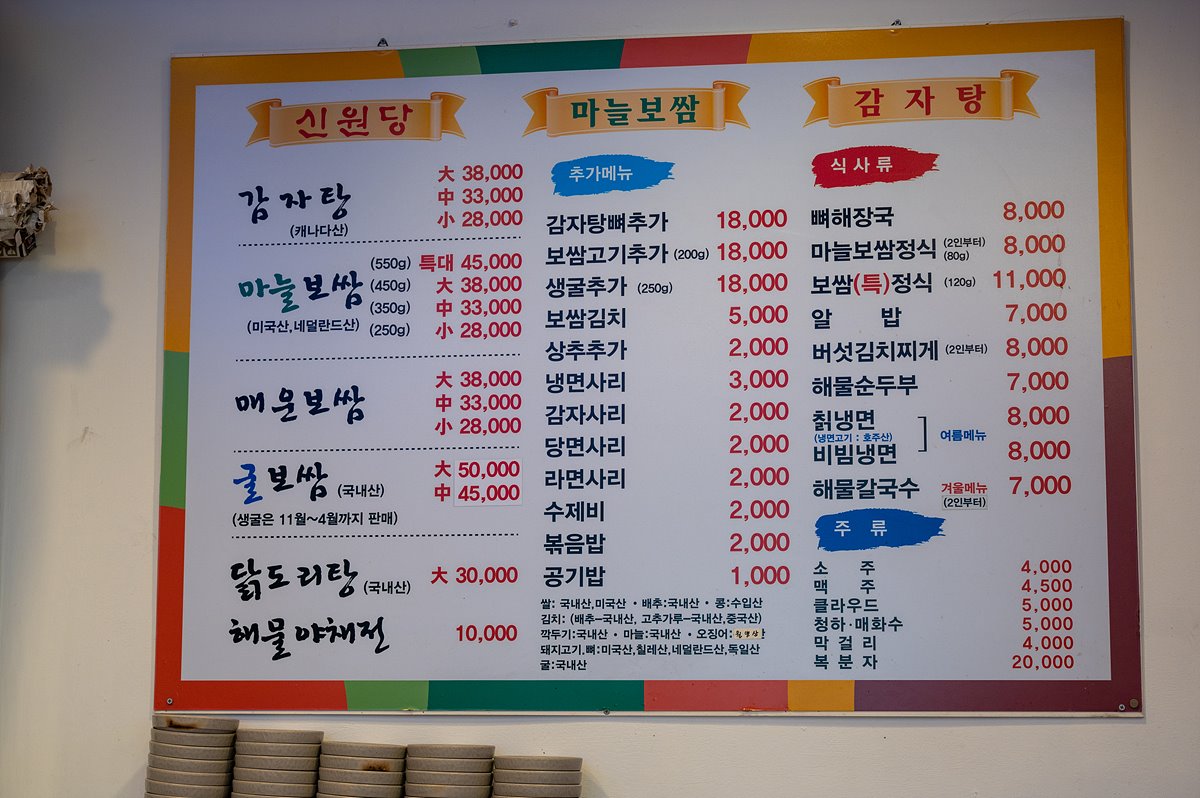 신원당
감자탕
(캐나다산)
大 38,000
中 33,000
小 28,000
마늘보쌈
(미국산,네덜란드산)
(550g) 특대 45,000
(450g) 大 38,000
(350g) 中 33,000
(250g) 小 28,000
매운보쌈
大 38,000
中 33,000
小 28,000
굴보쌈 (국내산)
大 50,000
中 45,000
(생굴은 11월~4월까지 판매)
닭도리탕 (국내산) 大 30,000
해물야채전 10,000
마늘보쌈
추가메뉴
감자탕뼈추가 18,000
보쌈고기추가 (200g) 18,000
생굴추가 (250g) 18,000
보쌈김치 5,000
상추추가 2,000
냉면사리 3,000
감자사리 2,000
당면사리 2,000
라면사리 2,000
수제비 2,000
볶음밥 2,000
공기밥 1,000
쌀: 국내산,미국산 • 배추:국내산 • 콩:수입산
김치: (배추-국내산, 고추가루-국내산,중국산)
깍두기:국내산 • 마늘:국내산 • 오징어:
돼지고기.뼈:미국산,칠레산,네덜란드산,독일산
굴:국내산
감자탕
식사류
뼈해장국 8,000
마늘보쌈정식 (2인부터) 8,000
(80g)
보쌈(특)정식 (120g) 11,000
알 밥 7,000
버섯김치찌게 (2인부터) 8,000
해물순두부 7,000
칡냉면 8,000
(냉면고기 : 호주산)
여름메뉴
비빔냉면 8,000
해물칼국수 겨울메뉴 7,000
(2인부터)
주 류
소 주 4,000
맥 주 4,500
클라우드 5,000
청하·매화수 5,000
막걸리 4,000
복분자 20,000